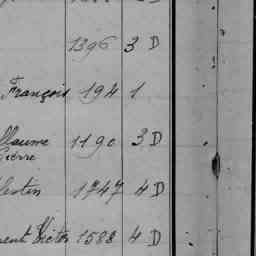 1396 3 D
François 194 1
llaume 1190 3 D
Pierre
lestin 1747 4 D
ment Victor 1588 4 D